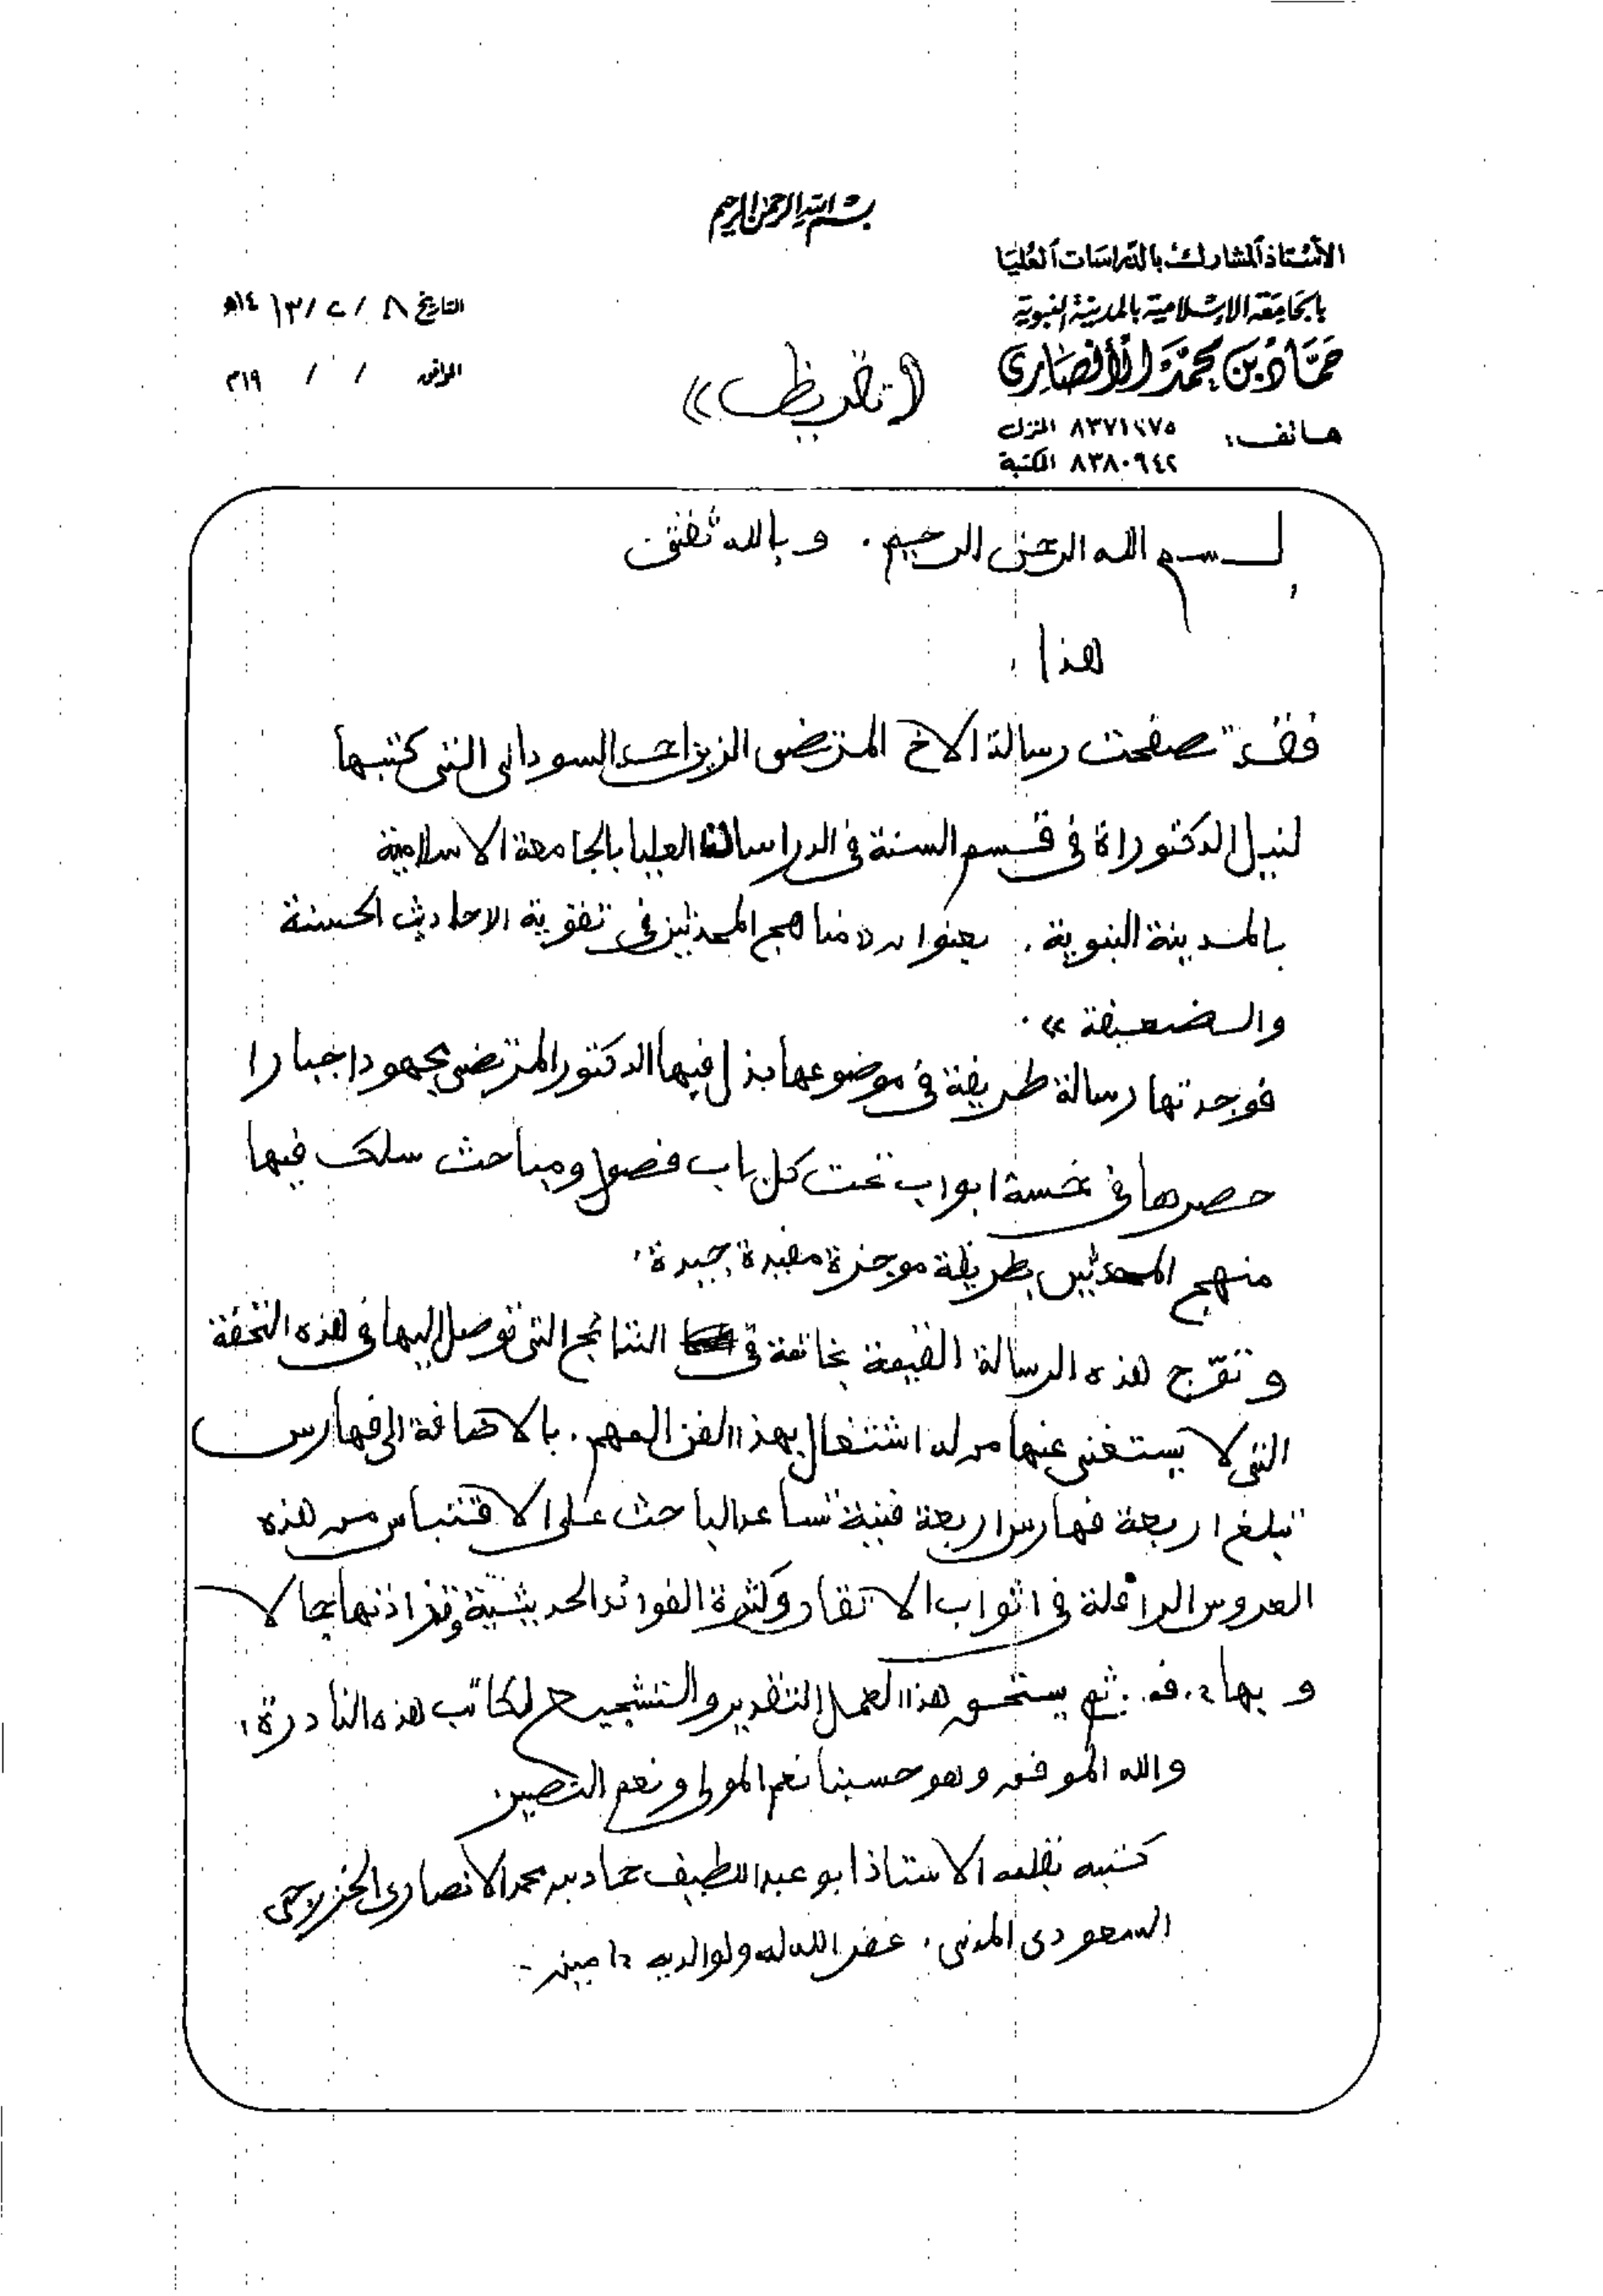 بسم الله الرحمن الرحيم
الأستاذ المشارك بالدراسات العليا
بالجامعة الإسلامية بالمدينة النبوية
حماد بن محمد الأنصاري
هاتف: ٨٣٧١٢٧٥ المنزل
٨٣٨٠٩٤٢ المكتبة
التاريخ ٨ / ٢ / ١٤١٣هـ
الموافق / / ١٩م
((تقريظ))
بسم الله الرحمن الرحيم . وبالله ثقتى
هذا ،
فقد تصفحت رسالة الاخ المرتضى الزين احمد السودانى التى كتبها
لنيل الدكتوراة فى قسم السنة فى الدراسات العليا بالجامعة الاسلامية
بالمدينة النبوية . بعنوان (( مناهج المحدثين فى تقوية الاحاديث الحسنة
والضعيفة )) .
فوجدتها رسالة طريفة فى موضوعها بذل فيها الدكتور المرتضى مجهودا جبارا
حصرها فى خمسة ابواب تحت كل باب فصول ومباحث سلك فيها
منهج المحدثين بطريقة موجزة مفيدة جيدة ،
وتوّج هذه الرسالة القيمة بخاتمة فى النتائج التى توصل اليها فى هذه التحفة
التى لا يستغنى عنها من له اشتغال بهذا الفن المهم . بالاضافة الى فهارس
تبلغ اربعة فهارس اربعة فنية تساعد الباحث على الاقتباس من هذه
العروس الرافلة فى اثواب الاتقان وكثرة الفوائد الحديثية بها لا
ثم يستحق هذا العمل التقدير والتشجيع لكاتب هذه النادرة ،
والله الموفق وهو حسبنا نعم المولى ونعم النصير
كتبه بقلمه الاستاذ ابو عبد اللطيف حماد بن محمد الانصارى الخزرجى
السعودى المدنى . غفر الله له ولوالديه ءامين